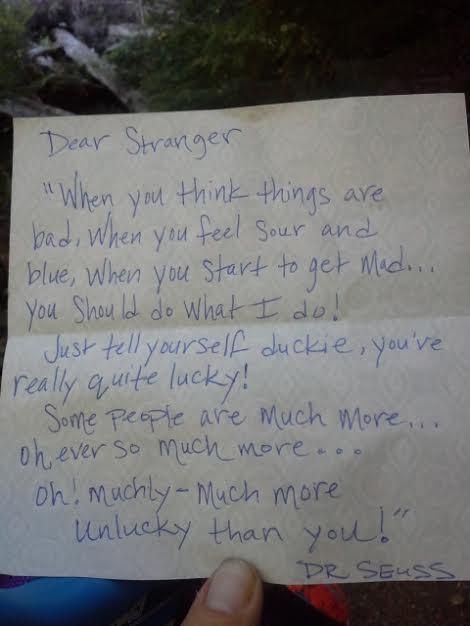 Dear Stranger
"When you think things are
bad, When you feel Sour and
blue, When you Start to get Mad...
You Should do What I do!
Just tell yourself duckie, you've
really quite lucky!
Some People are Much More...
oh, ever so much more...
oh! muchly-Much more
Unlucky than you!"
DR SEUSS